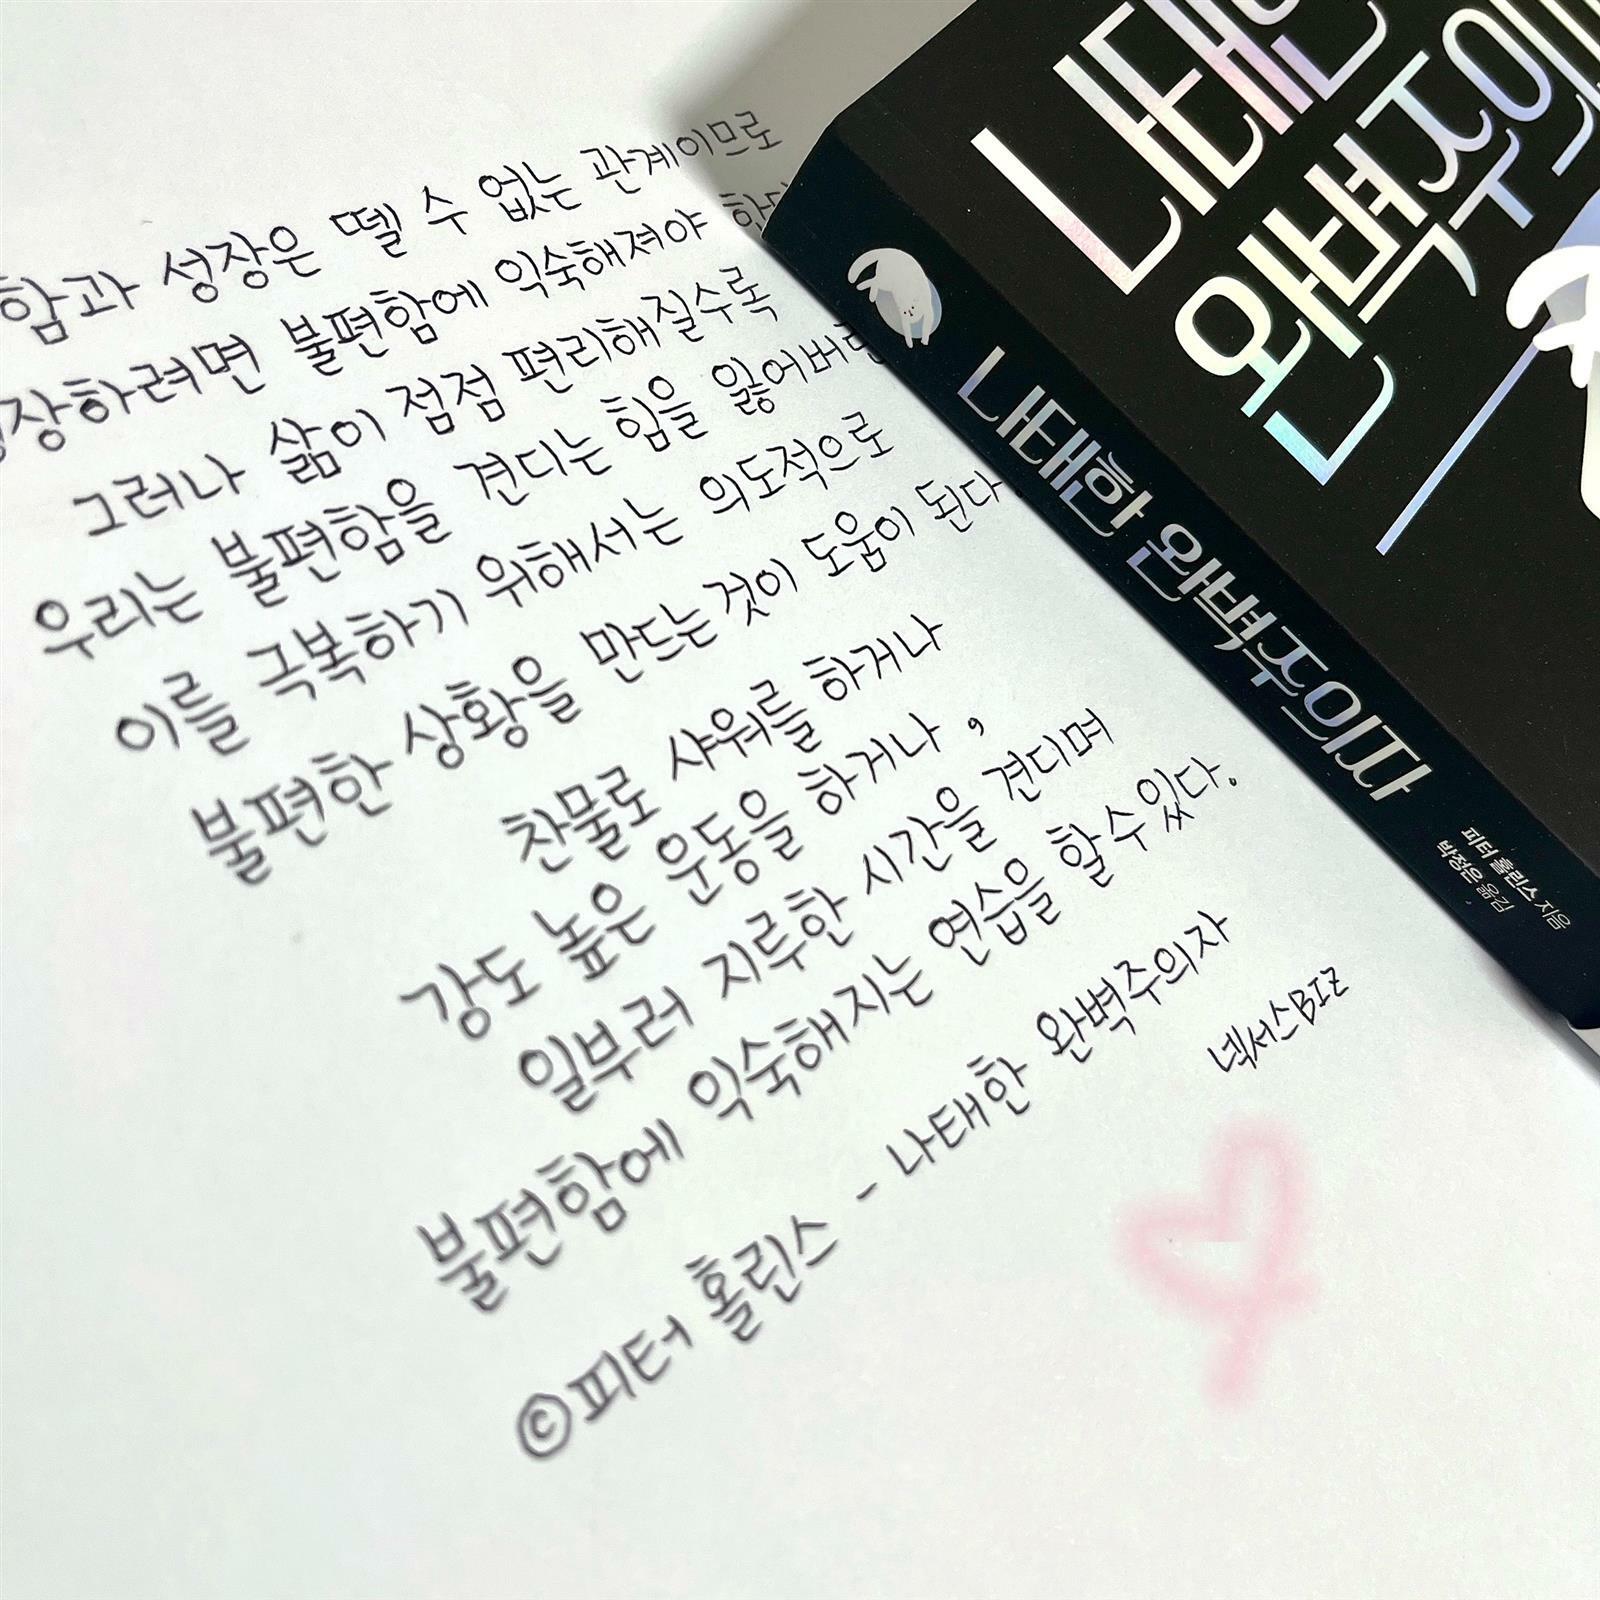 함과 성장은 뗄 수 없는 관계이므로
성장하려면 불편함에 익숙해져야 한다
그러나 삶이 점점 편리해질수록
우리는 불편함을 견디는 힘을 잃어버린
이를 극복하기 위해서는 의도적으로
불편한 상황을 만드는 것이 도움이 된다.
찬물로 샤워를 하거나
강도 높은 운동을 하거나,
일부러 지루한 시간을 견디며
불편함에 익숙해지는 연습을 할 수 있다.
©피터 홀린스 - 나태한 완벽주의자
넥서스BIZ
나태한
완벽주의
나태한 완벽주의자
피터 홀린스 지음
박정은 옮김